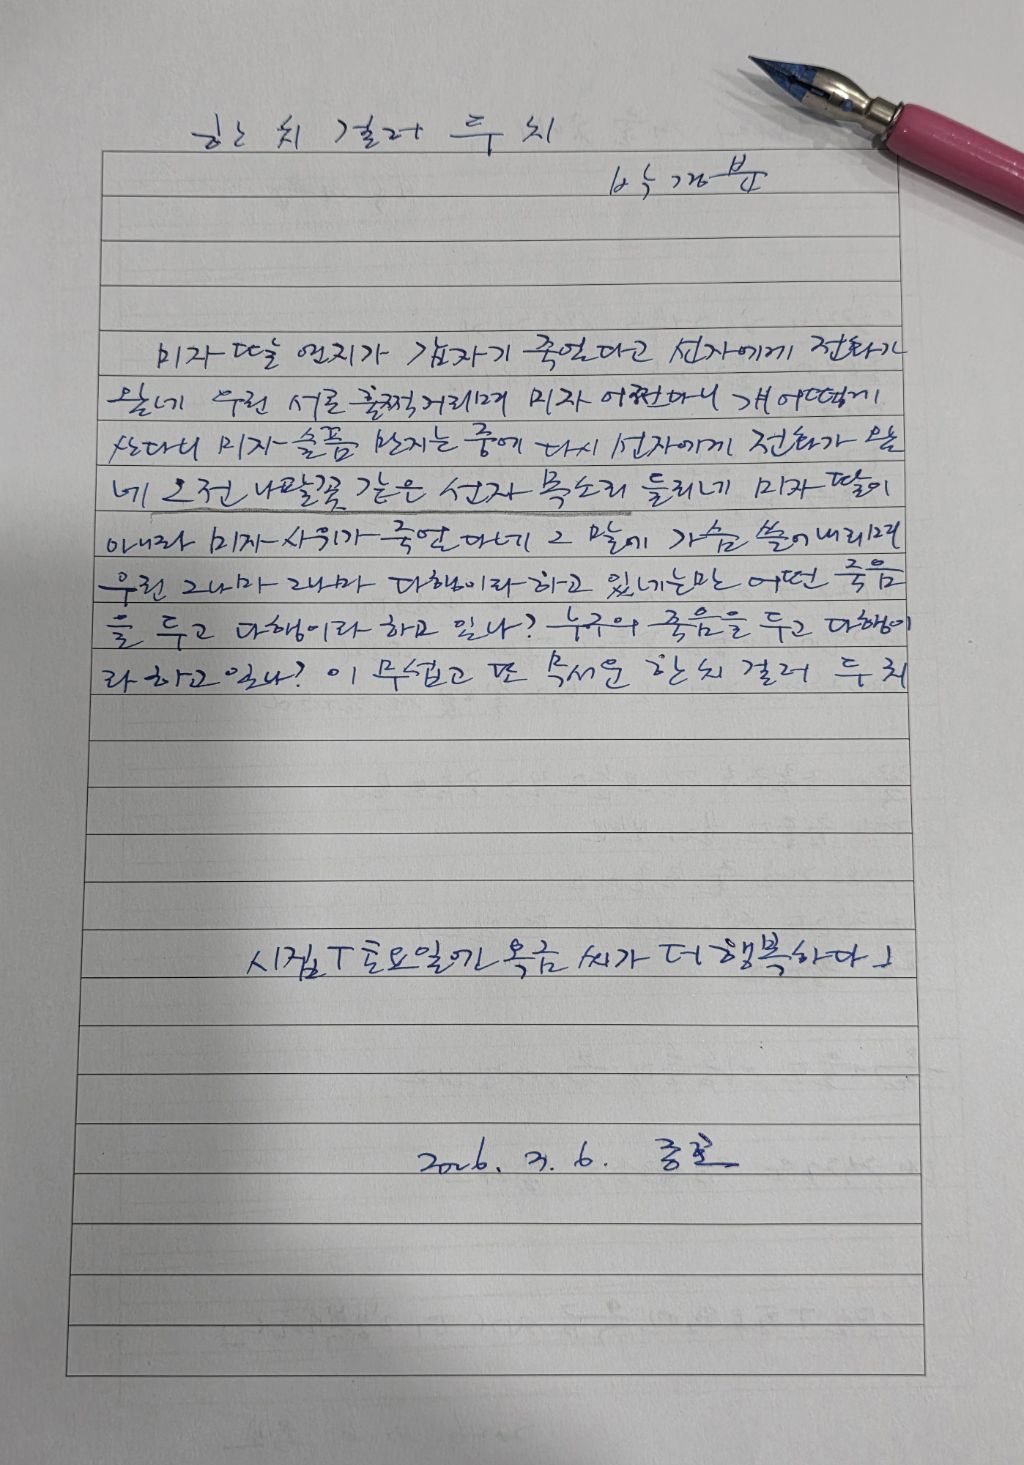 한 치 걸러 두 치
박경분
미자 딸 연지가 갑자기 죽었다고 선자에게 전화가
왔네 우린 서로 훌쩍거리며 미자 어쩐다니 걔 어떻게
산다니 미자 슬픔 만지는 중에 다시 선자에게 전화가 왔
네 오전 나팔꽃 같은 선자 목소리 들리네 미자 딸이
아니라 미자 사위가 죽었다네 그 말에 가슴 쓸어내리며
우린 그나마 그나마 다행이라 하고 있네만 어떤 죽음
을 두고 다행이라 하고 있나? 누구의 죽음을 두고 다행이
라 하고 있나? 이 무섭고 또 무서운 한 치 걸러 두 치
시집 「토요일엔 옥금 씨가 더 행복하다」
2026. 3. 6.